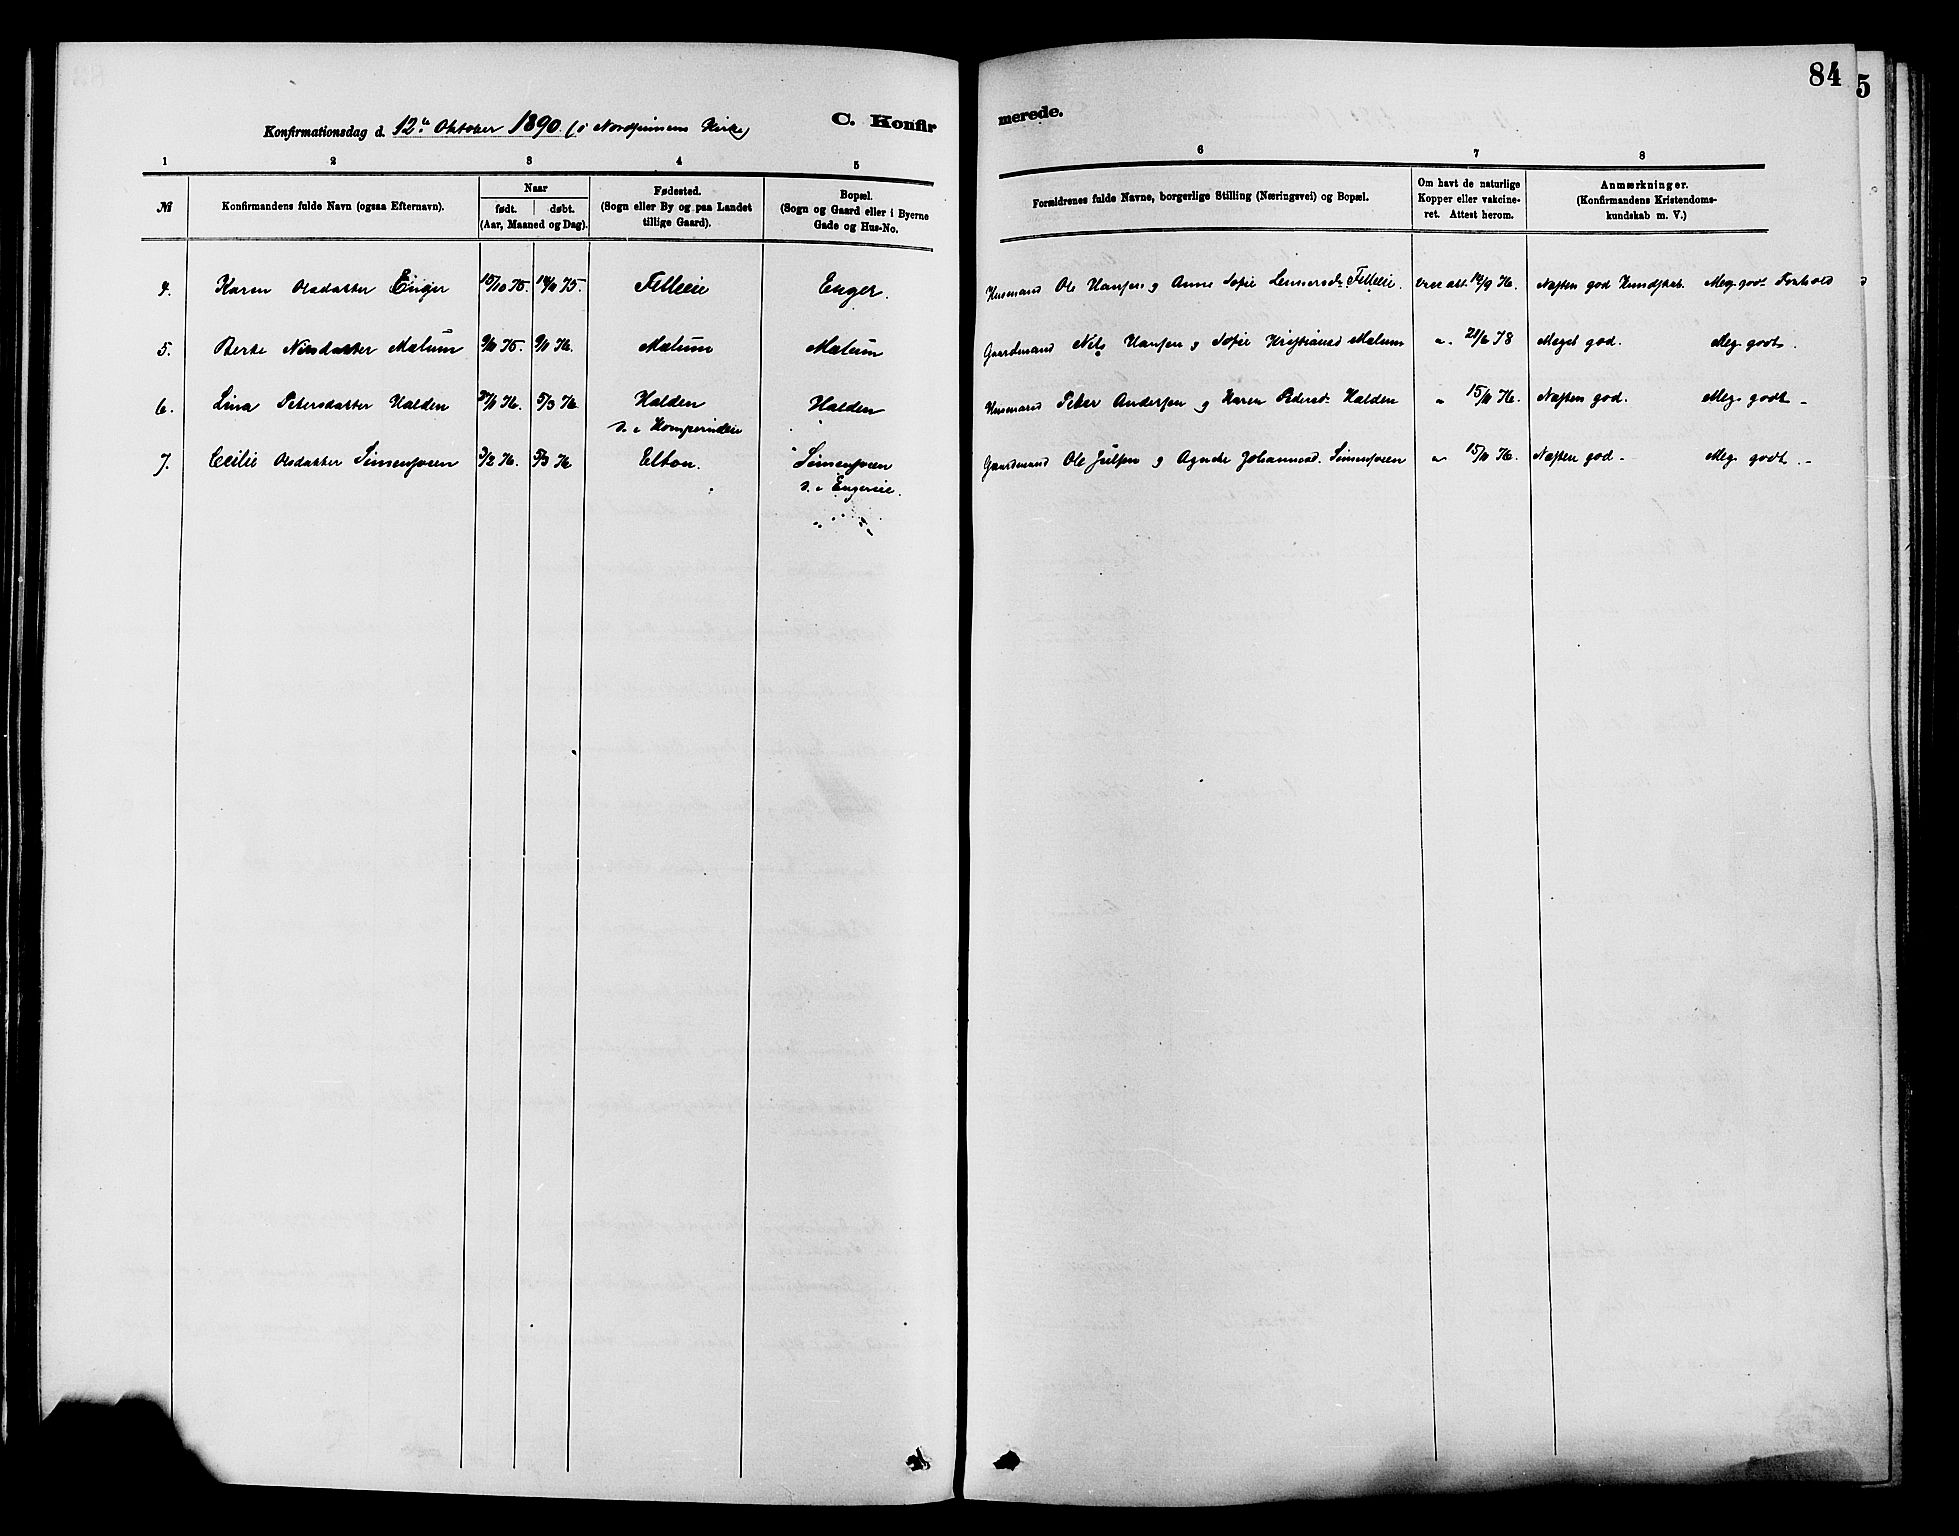 84
5
Konfirmationsdag d. 12te Oktober 1890. (i Nordsinnens Kirke)
C. Konfir
merede.
1 2 3 4 5 6 7 8
№
Konfirmandens fulde Navn (ogsaa Efternavn).
Naar
født. døbt.
(Aar, Maaned og Dag).
Fødested.
(Sogn eller By og paa Landet
tillige Gaard).
Bopæl.
(Sogn og Gaard eller i Byerne
Gade og Hus-No.
Forældrenes fulde Navne, borgerlige Stilling (Næringsvei) og Bopæl.
Om havt de naturlige
Kopper eller vakcine-
ret. Attest herom.
Anmærkninger.
(Konfirmandens Kristendoms-
kundskab m. V.)
4. Karen Olsdatter Enger 15/10 75. 14/11 75. Felleie Enger. Husmand Ole Hansen og Anne Sofie Felleie. vacc. att. 19/9 76. Næsten god Kundskab. Meg. godt Forhold
5. Berte Nilsdatter Mælum 9/11 75. 9/1 76. Mælum Mælum Gaardmand Nils Hansen og Sofie Kristiansd. Mælum " 21/6 78 Meget god. Meg. godt.
6. Lina Petersdatter Halden 27/1 76. 5/3 76 Halden Halden Husmand Peter Andersen og Karen Pedersd. Halden " 15/11 76. Næsten god. Meg. godt -
7. Cecilie Olsdatter Simensveen 3/2 76. 5/3 76 Elton. Simensveen Gaardmand Ole Julsen og Agnethe Johannesd. Simensveen " 15/11 76. Næsten god - Meg. godt. -
s. e. Engereie.